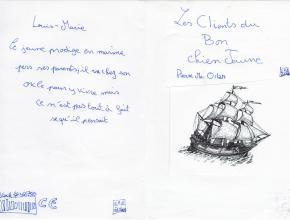 Louis-Marie
Le jeune prodige en marine
pers ses parents, il va chez son
oncle pour y vivre mais
ce n'est pas tout à fait
ce qu'il pensait
CE
Les Clients du
Bon
Chien Jaune
Pierre Mc Orlan